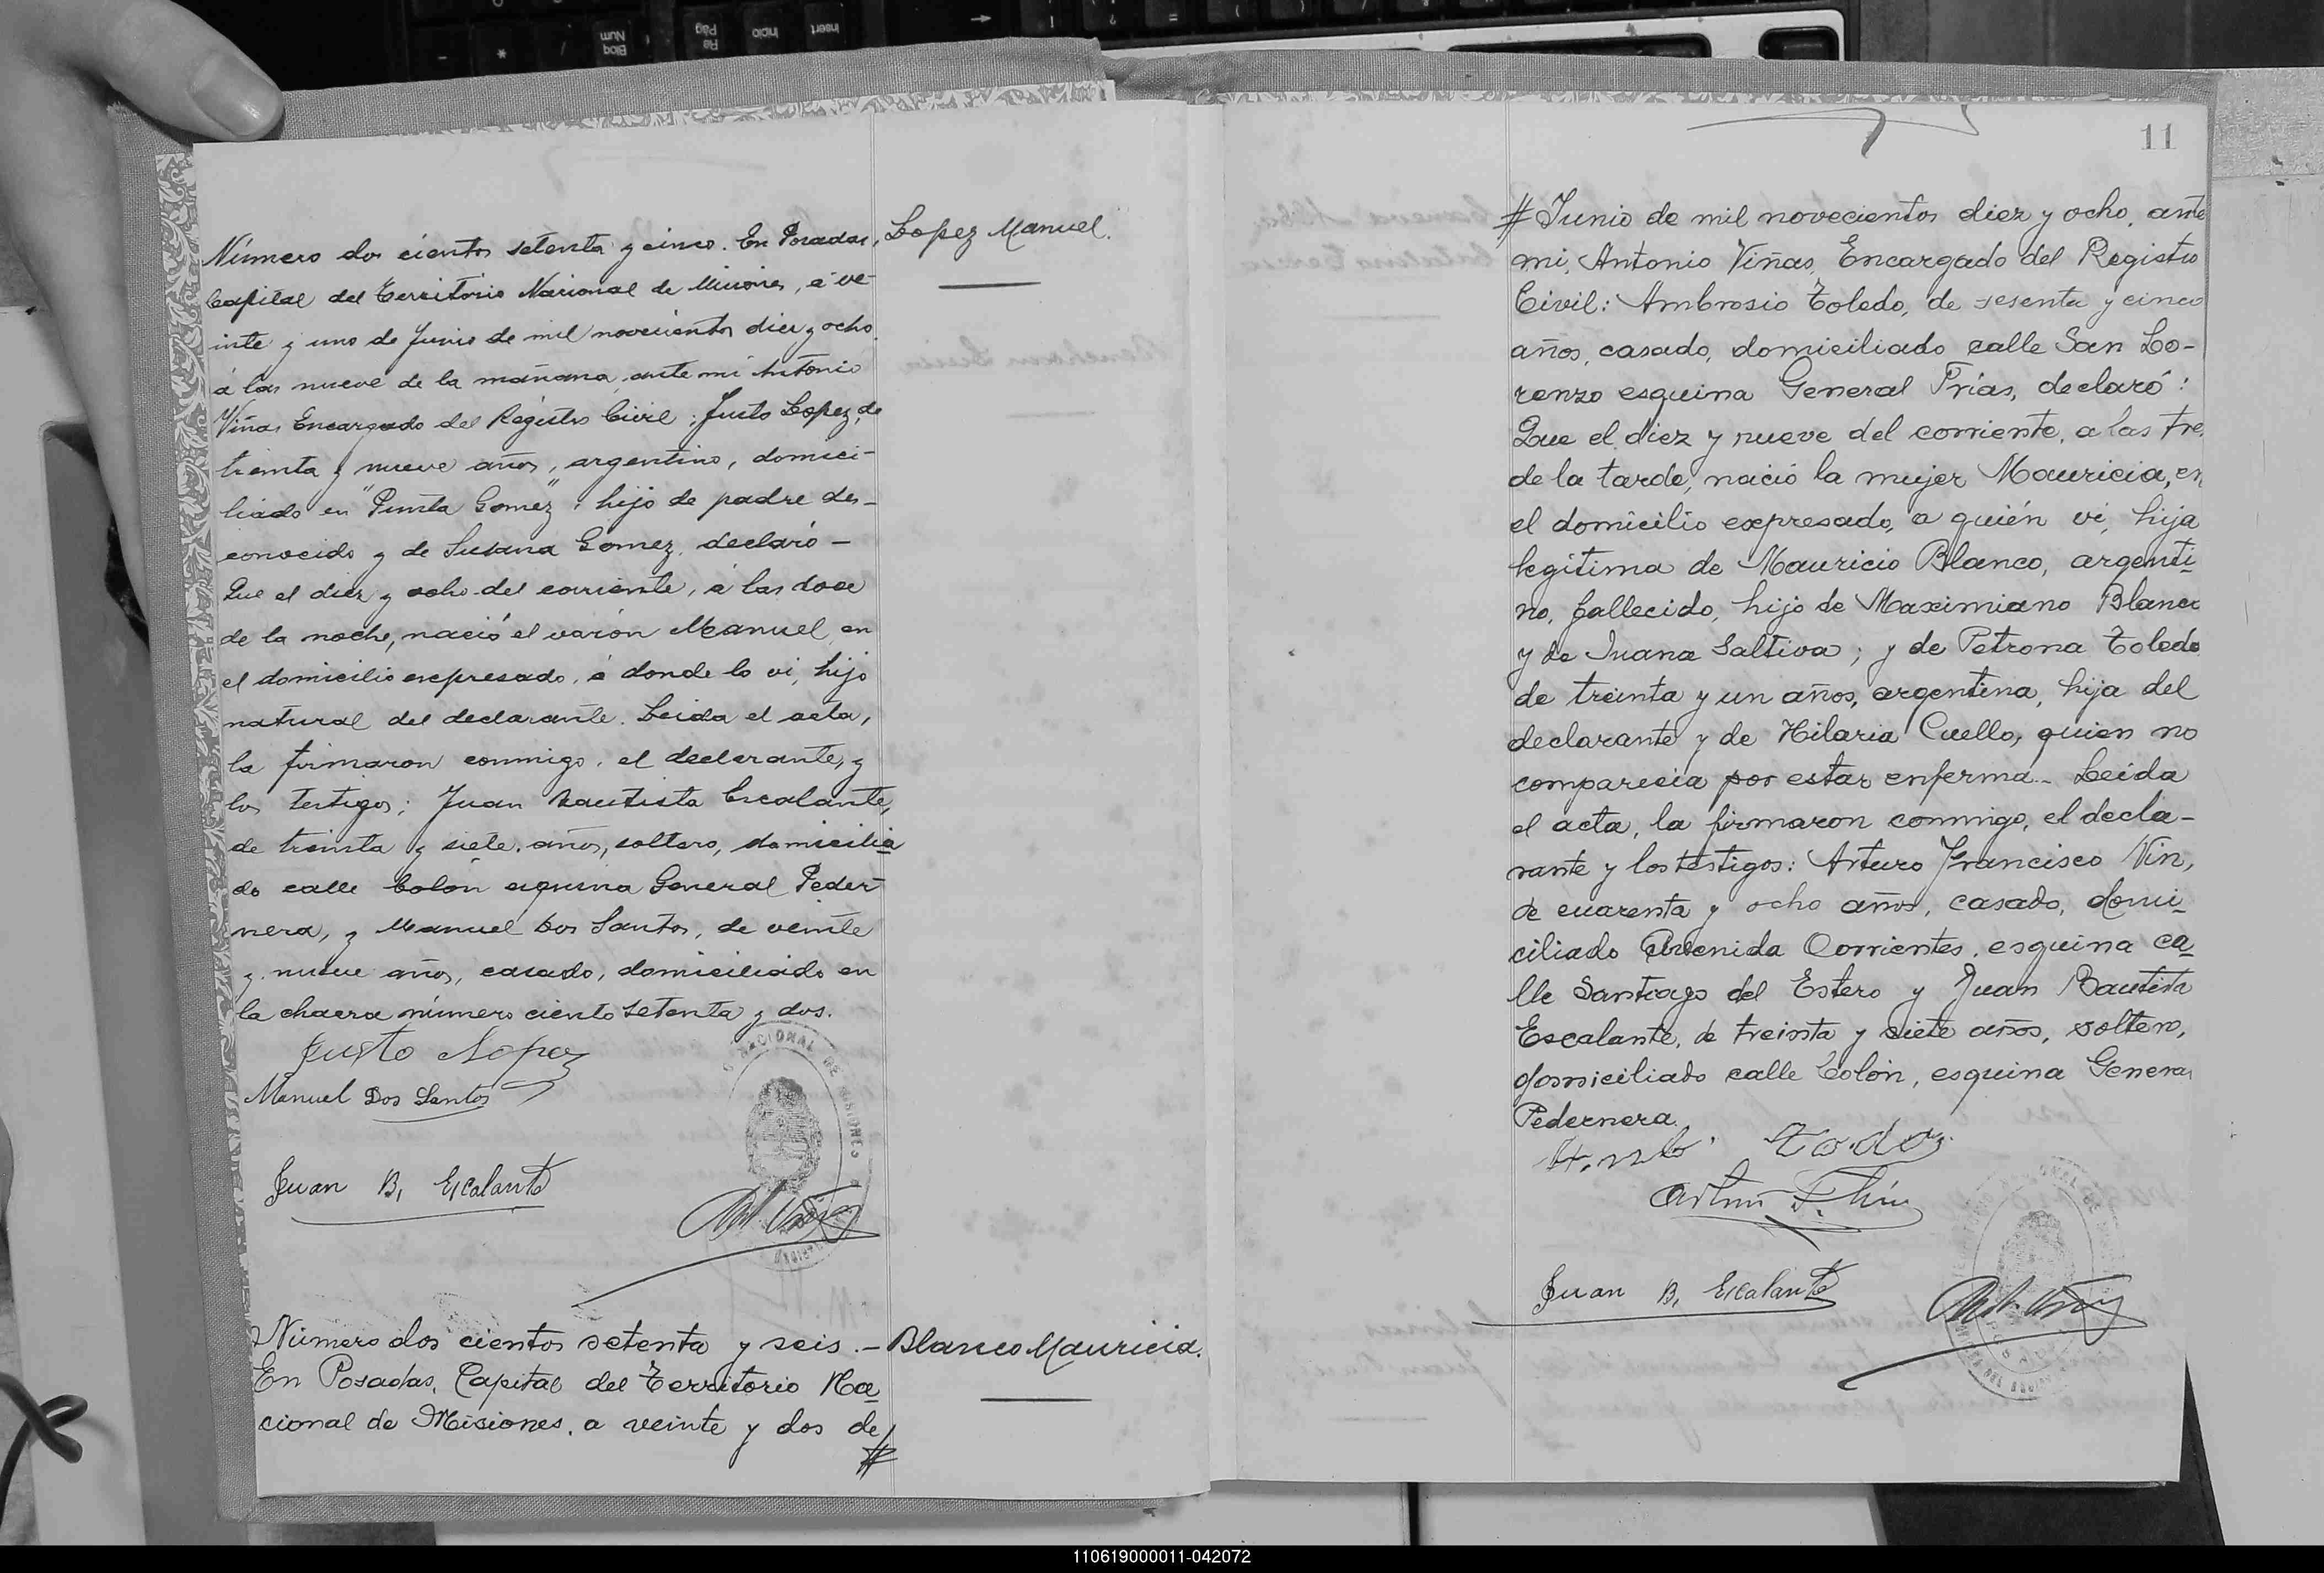 Número dos cientos setenta y cinco. En Posadas,
Capital del Territorio Nacional de Misiones, á ve-
inte y uno de Junio de mil novecientos diez y ocho
á las nueve de la mañana, ante mi Antonio
Viñas Encargado del Registro Civil; Justo Lopez, de
treinta y nueve años, argentino, domici-
liado en "Punta Gomez", hijo de padre des-
conocido y de Susana Gomez, declaró -
Que el diez y ocho del corriente, á las doce
de la noche, nació el varón Manuel, en
el domicilio expresado, á donde lo vi, hijo
natural del declarante. Leida el acta,
la firmaron conmigo, el declarante, y
los testigos; Juan Bautista Escalante,
de treinta y siete años, soltero, domicilia
do calle Colón esquina General Peder-
nera, y Manuel Dos Santos, de veinte
y nueve años, casado, domiciliado en
la chacra número ciento setenta y dos.
Justo Lopez
Manuel Dos Santos
Juan B, Escalante
Ant. Viñas
Lopez Manuel.
Número dos cientos setenta y seis. -
En Posadas, Capital del Territorio Na-
cional de Misiones, a veinte y dos de
#
Blanco Mauricia.
11
# Junio de mil novecientos diez y ocho, ante
mi, Antonio Viñas, Encargado del Registro
Civil: Ambrosio Toledo, de sesenta y cinco
años, casado, domiciliado calle San Lo-
renzo esquina General Frías, declaró:
Que el diez y nueve del corriente, a las tres
de la tarde, nació la mujer Mauricia, en
el domicilio expresado, a quién vi, hija
legitima de Mauricio Blanco, argenti-
no, fallecido, hijo de Maximiano Blanco
y de Juana Saltiva; y de Petrona Toledo
de treinta y un años, argentina, hija del
declarante y de Hilaria Cuello, quien no
comparecia por estar enferma.- Leida
el acta, la firmaron conmigo, el decla-
rante y los testigos: Arturo Francisco Vin,
de cuarenta y ocho años, casado, domi-
ciliado Avenida Corrientes, esquina ca-
lle Santiago del Estero y Juan Bautista
Escalante, de treinta y siete años, soltero,
domiciliado calle Colón, esquina General
Pedernera.
Arturo F. Vin
Juan B, Escalante
Ant. Viñas
110619000011-042072